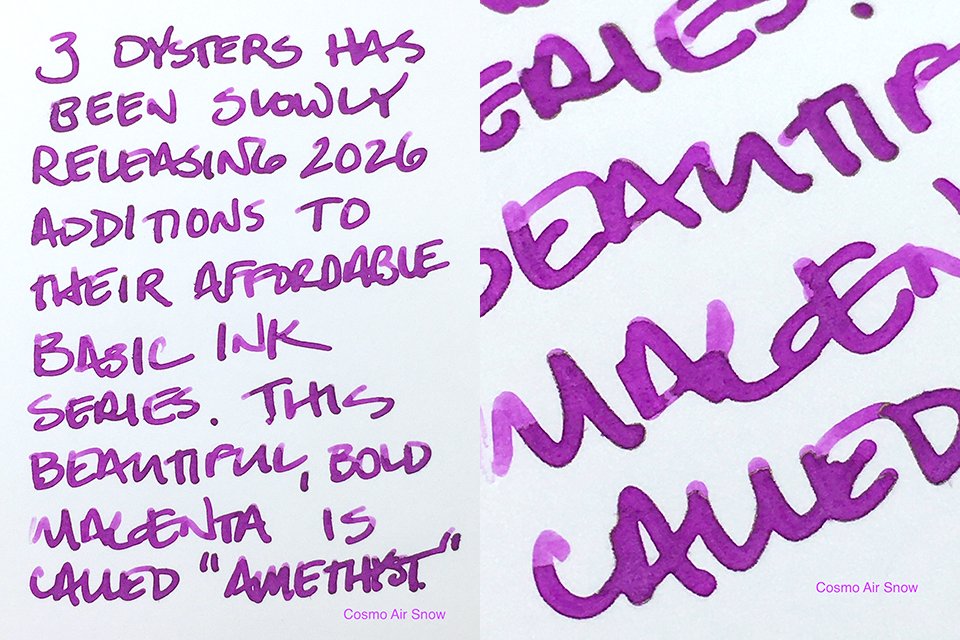 3 OYSTERS HAS
BEEN SLOWLY
RELEASING 2026
ADDITIONS TO
THEIR AFFORDABLE
BASIC INK
SERIES. THIS
BEAUTIFUL, BOLD
MAGENTA IS
CALLED "AMETHYST."
Cosmo Air Snow
ERIES.
BEAUTIF
MAGEN
CALLED
Cosmo Air Snow